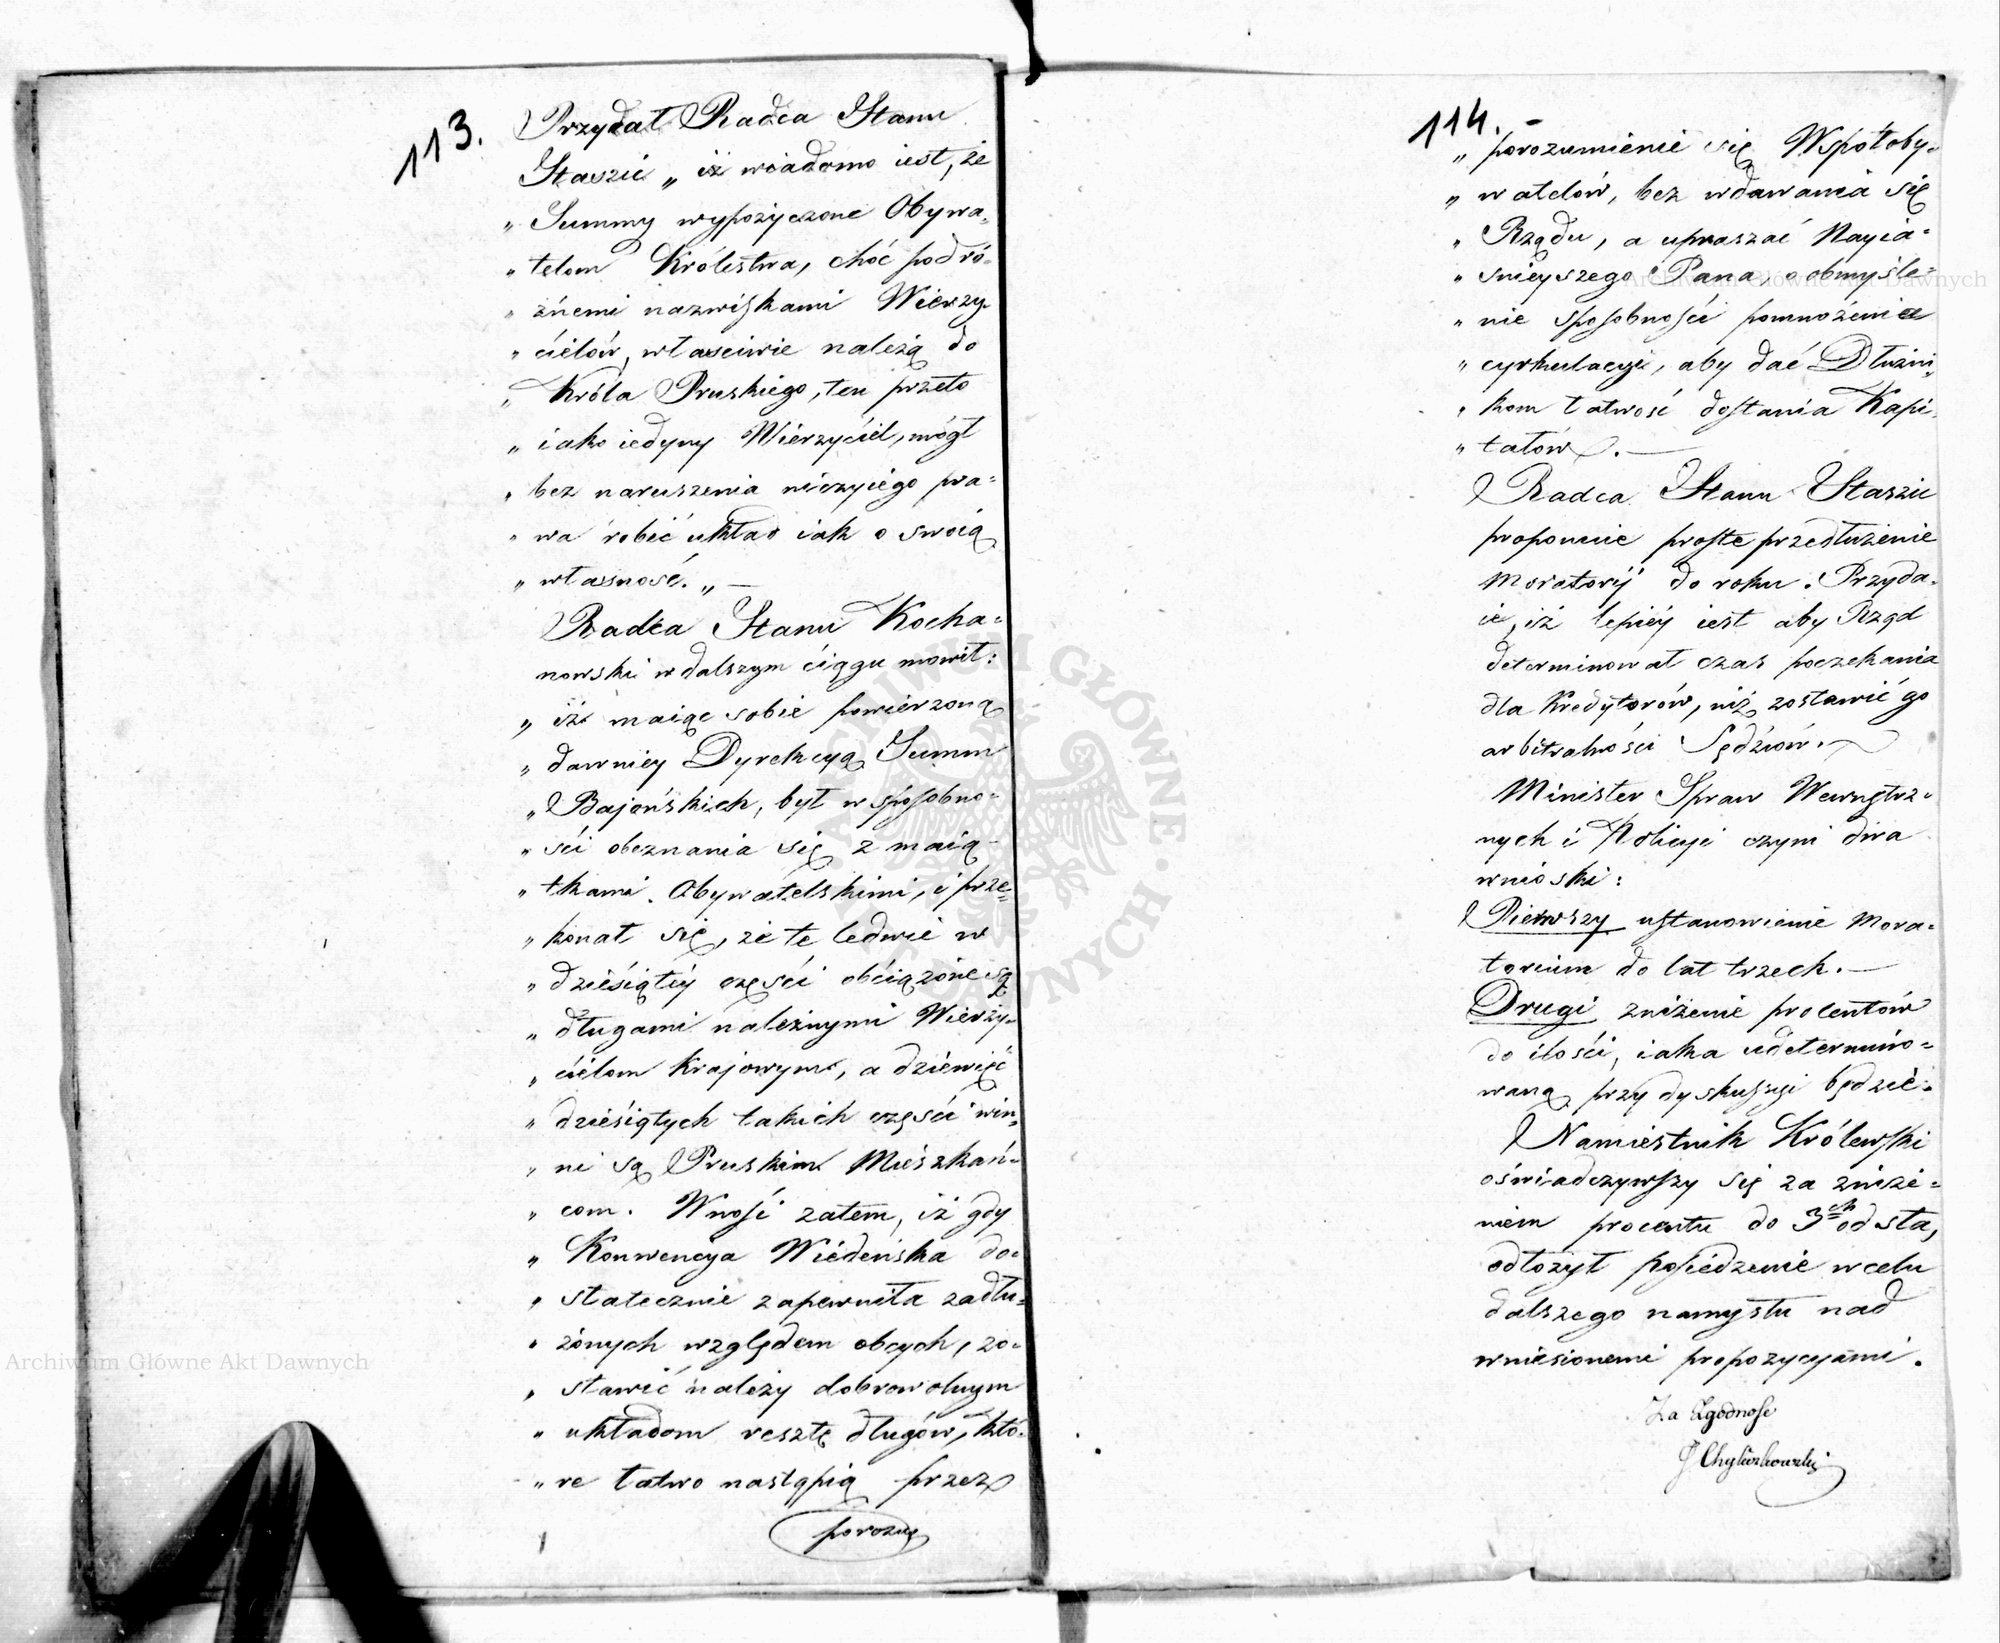 113.
Przydał Radca Stanu
Staszic „ iż wiadomo iest, że
„ Summy wypożyczone Obywa„
„ telom Królestwa, choć pod ró„
„ żnemi nazwiskami Wierzy„
„ cielów, własciwie należą do
„ Króla Pruskiego, ten przeto
„ iako iedyny Wierzyciel, mógł
„ bez naruszenia niczyiego pra„
„ wa robić układ iak o swoią
„ własność. „ —
Radca Stanu Kocha„
nowski w dalszym ciągu mowił:
„ iż maiąc sobie powierzoną
„ dawniey Dyrekcyą Summ
„ Bajońskich, był w sposobno„
„ ści obeznania się z maią„
„ tkami Obywatelskimi, i prze„
„ konał się, że te ledwie w
„ dziesiątéy części obciążone są
„ długami należnymi Wierzy„
„ cielom krajowym, a dziewięć
„ dziesiątych takich części win„
„ ni są Pruskim Mieszkań„
„ com. Wnosi zatem, iż gdy
„ Konwencya Wiedeńska do„
„ statecznie zapewniła zadłu„
„ żonych względem obcych, zo„
„ stawić należy dobrowolnym
„ układom resztę długów, któ„
„ re łatwo nastąpią przez
porozu„
114.
„ porozumienie się Współoby„
„ watelów, bez wdawania się
„ Rządu, a upraszać Nayia„
„ śnieyszego Pana o obmyśle„
„ nie sposobności pomnożenia
„ cyrkulacyi, aby dać Dłużni„
„ kom łatwość dostania Kapi„
„ tałów. —
Radca Stanu Staszic
proponuie proste przedłużenie
Moratorij do roku. Przyda„
ie, iż lepiéy iest aby Rząd
determinował czas poczekania
dla Kredytorów, niż zostawić go
arbitralności Sędziów. —
Minister Spraw Wewnętrz„
nych i Policyi czyni dwa
wnioski:
Pierwszy ustanowienie Mora„
torium do lat trzech. —
Drugi zniżenie procentów
do ilości, iaka udetermino„
waną przy dyskussyi będzie.
Namiestnik Królewski
oświadczywszy się za zniże„
niem procentu do 3ch od sta,
odłożył posiedzenie w celu
dalszego namysłu nad
wniesionemi propozycyami.
Za Zgodnosc
J Chyliczkowski
ARCHIWUM GŁÓWNE AKT DAWNYCH
Archiwum Główne Akt Dawnych
Archiwum Główne Akt Dawnych